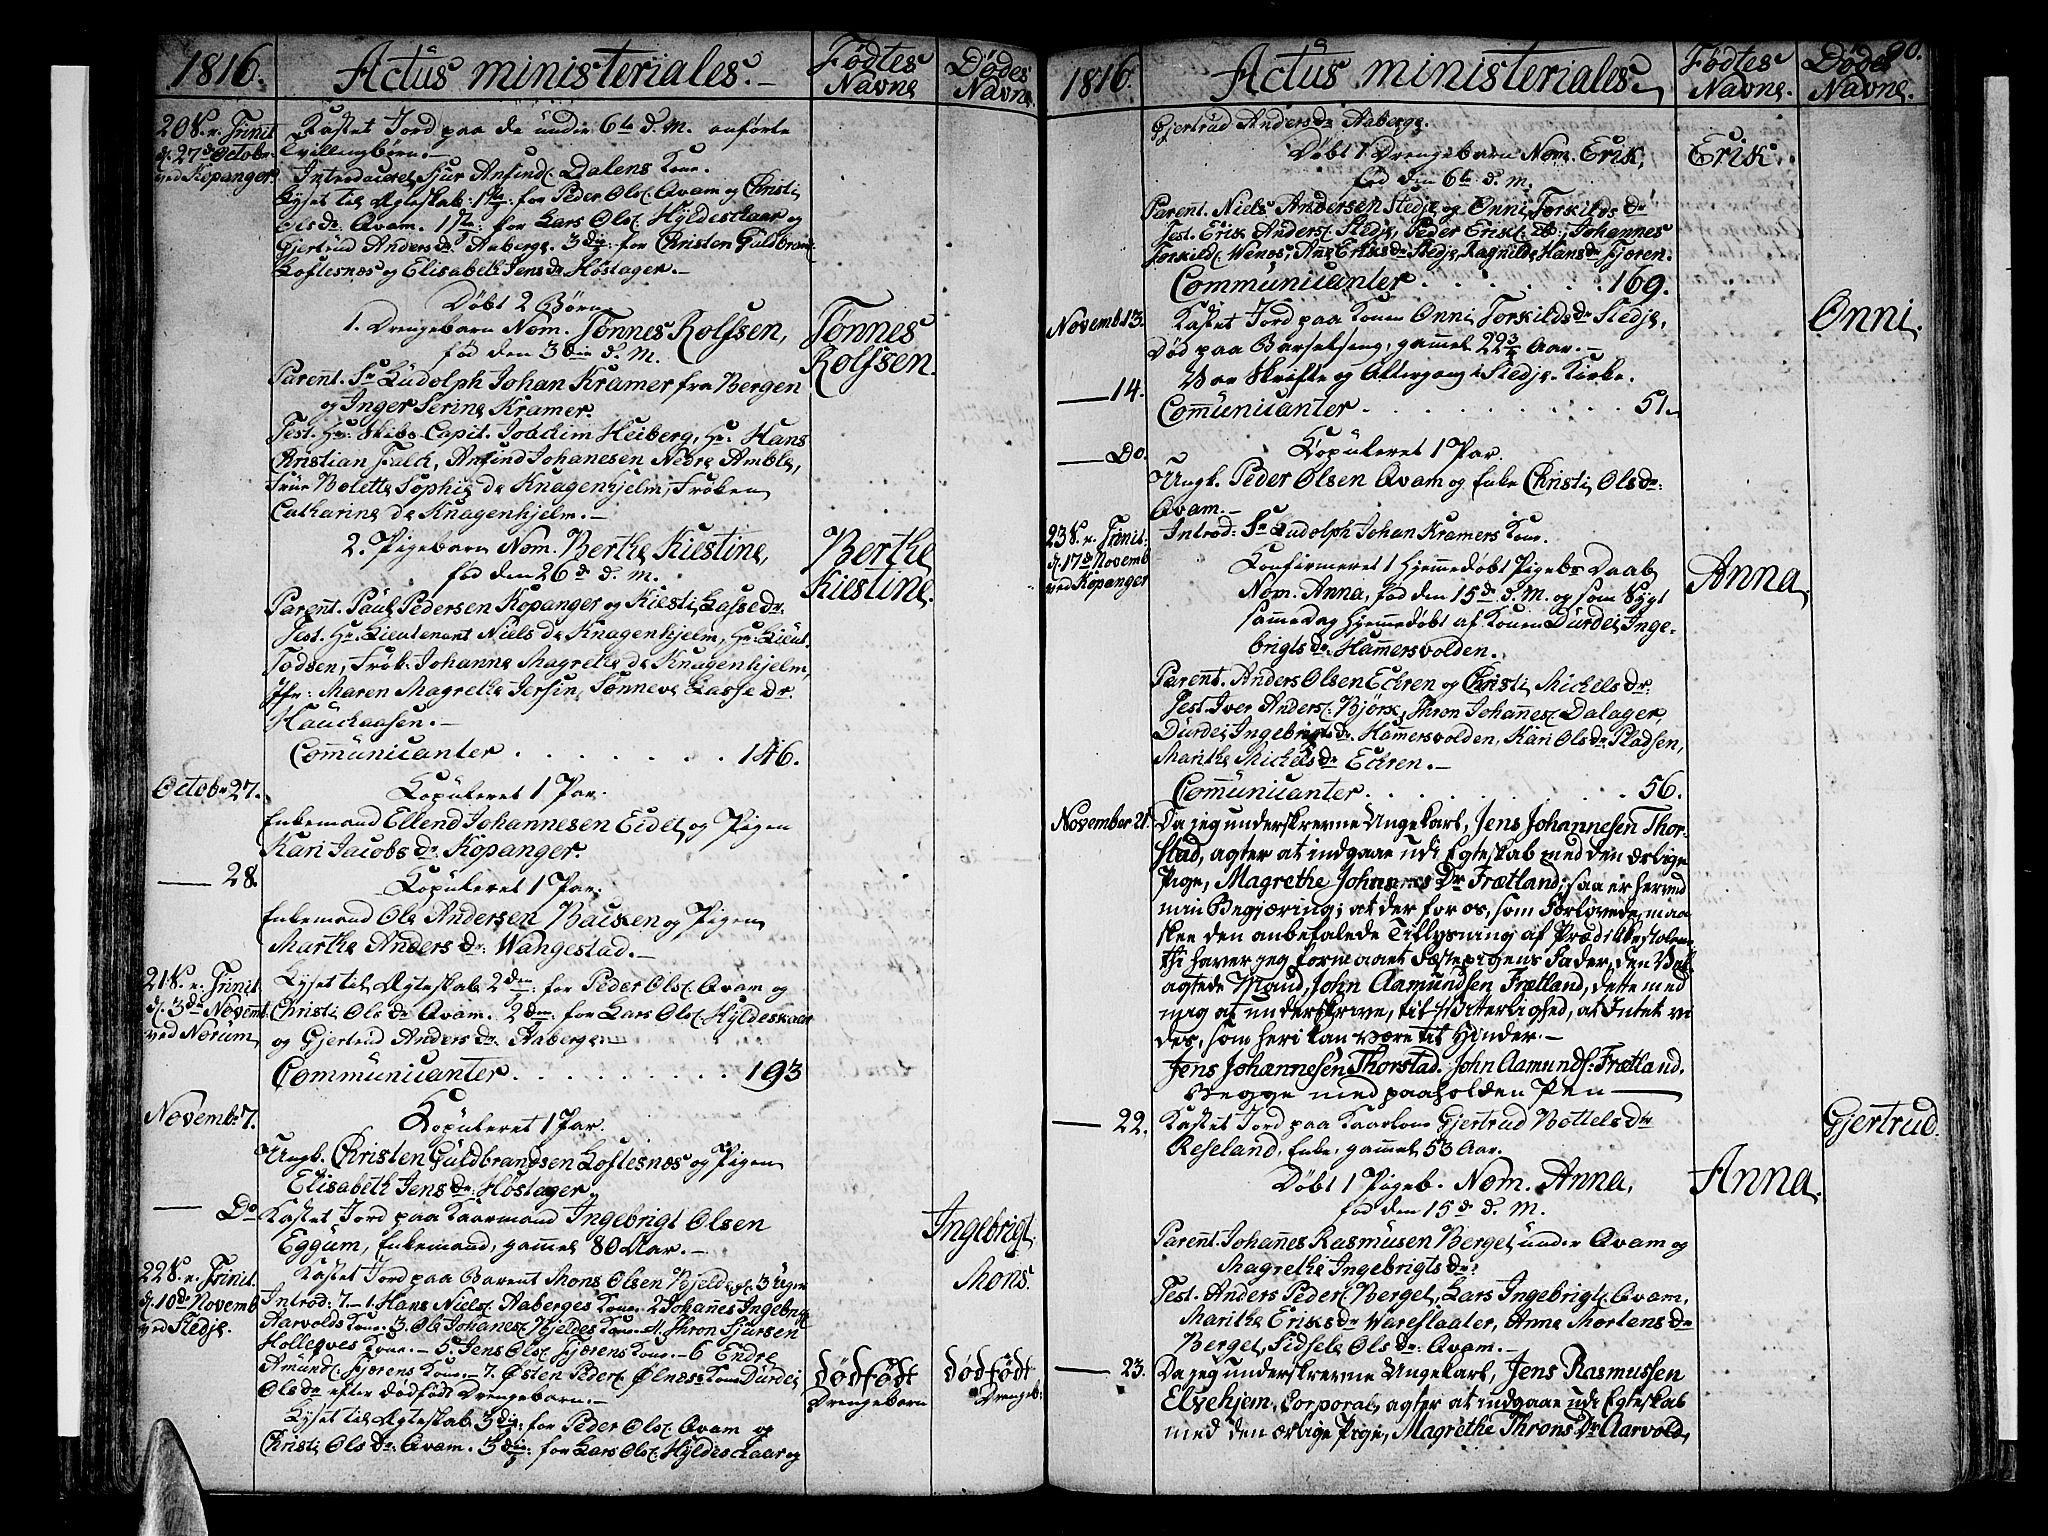 1816.
Actus ministeriales.
Fødtes Navne
Dødes Navne
20 S. e. Trinit.
d. 27de Octobr.
ved Kopanger
Kastet Jord paa de under 6te d. M. anførte
Tvillingbørn.
Introduceret Siur Anfind: Dalens Kone.
Lyset til Ægteskab: 1ste: for Peder Ols: Qvam og Christi
Olsdr Qvam. 1ste: for Lars Ols: Hyldeskaar og
Gjertrud Andersdr Aaberge. 3die: for Christen Guldbrans:
Loftesnæs og Elisabeth Jensdr Høstager.
Døbt 2 Børn
1. Drengebarn Nom. Tønnes Rolfsen,
Tønnes
Rolfsen.
fød den 3die d. M.
Parent. Sr Ludolph Johan Kramer fra Bergen
og Inger Serine Kramer.
Test. Hr: Skibs-Capit. Joachim Heiberg, Hr: Hans
Christian Falck, Anfind Johanesen Nedre Amble,
Frue Bolette Sophie de Knagenhjelm, Frøken
Catharine de Knagenhjelm.
2. Pigebarn Nom. Berthe Kiestine,
Berthe
Kiestine.
fød den 26de d. M.
Parent. Paul Pedersen Kopanger og Kiesti Lassedr.
Test. Hr. Lieutenant Niels de Knagenhjelm, Hr. Lieut.
Todsen, Frøk. Johanna Magrethe de Knagenhjelm,
Jfr: Maren Magrethe Jersin, Sønneve Lassedr.
Haukaasen.
Communicanter . . . . . . 146.
Octobr 27.
Kopuleret 1 Par.
Enkemand Ellend Johannesen Eidet og Pigen
Kari Jacobsdr. Kopanger.
— 28.
Kopuleret 1 Par.
Enkemand Ole Andersen Bakken og Pigen
Marthe Andersdr. Wangestad.
21 S. e. Trinit.
d. 3de Novembr.
ved Norum
Lyset til Ægteskab 2den: for Peder Ols: Qvam og
Christi Olsdr Qvam. 2den: for Lars Ols: Hyldeskaar
og Gjertrud Andersdr. Aaberge
Communicanter . . . . . . 193
Novembr 7.
Kopuleret 1 Par.
Ungk. Christen Guldbrandsen Loftesnæs og Pigen
Elisabeth Jensdr: Høstager.
— Do
Kastet Jord paa Kaarmand Ingebrigt Olsen
Ingebrigt.
Eggum, Enkemand, gammel 80 Aar.
22 S. e. Trinit.
d. 10de Novemb
ved Stedje.
Kastet Jord paa Barnet Mons Olsen Bjelde, gl. 3 Uger
Mons.
Introd: 7. 1. Hans Niels: Aaberges Kone. 2 Johanes Ingebrigt:
Aarvolds Kone. 3. Ole Johanes: Bjeldes Kone. 4. Thron Sjursen
Hollesves Kone. 5. Jens Ols: Fjørens Kone. 6 Endre
Amund: Fjørens Kone. 7. Østen Peder: Ølnæs Kone Durdei
Olsdr efter dødfødt Drengebarn.
dødfødt
Drengebarn
dødfødt
Drengeb:
Lyset til Ægteskab 3die: for Peder Ols: Qvam og
Christi Olsdr: Qvam. 3die: for Lars Ols: Hyldeskaar og
1816.
Actus ministeriales.
Fødtes Navne.
Dødes Navne.
90.
Gjertrud Andersdr Aaberge.
Døbt 1 Drengebarn Nom. Erik,
Erik
fød den 6te d. M.
Parent. Niels Andersen Stedje og Onni Torkildsdr
Test. Erik Anders: Stedje, Peder Eriks: ib:, Johannes
Torkild: Wenes, Ane Eriksdr Stedje, Ragnilde Hansdr Fjøren.
Communicanter . . . . . . 169.
Novemb 13.
Kastet Jord paa Konen Onni Torkildsdr Stedje,
Onni.
Død paa Barselseng, gammel 22 3/4 Aar.
— 14.
Var Skrifte og Altergang i Stedje Kirke.
Communicanter . . . . . . . 51.
— Do.
Kopuleret 1 Par.
Ungk. Peder Olsen Qvam og Enke Christi Olsdr:
Qvam.
23 S. e. Trinit.
d. 17de Novemb
ved Kopanger
Introd: Sr Ludolph Johan Kramers Kone.
Confirmeret 1 Hjemmedøbt Pigebs Daab
Anna
Nom. Anna, fød den 15de d. M. og som Sygt
samme dag hjemmedøbt af Konen Durdei Inge-
brigtsdr. Hamersvolden.
Parent. Anders Olsen Eckren og Christi Michelsdr.
Test. Iver Anders: Bjørk, Thron Johannes: Dalager,
Durdei Ingebrigtsdr. Hamersvolden, Kari Olsdr Pladsen,
Marithe Michelsdr Eckren.
Communicanter . . . . . . . 56.
November 21.
Da jeg underskrevne Ungekarl, Jens Johannesen Thor-
stad, agter at indgaae udi Egteskab med den ærlige
Pige, Magrethe Johnsdr Frætland; saa er herved
min Begjæring; at der for os, som Forlovede, maa
skee den anbefalede Tillysning af Prædikestolen,
thi haver jeg formaaet Fæstepigens Fader, den Vel-
agtede Mand, John Aamundsen Frætland, dette med
mig at underskrive, til Vitterlighed, at Intet vi-
des, som heri kan være til Hinder.
Jens Johannesen Thorstad. John Aamunds: Frætland.
Begge med paaholden Pen
— 22.
Kastet Jord paa Kaarkone Gjertrud Bottelsdr
Gjertrud.
Reseland, Enke, gammel 53 Aar.
Døbt 1 Pigeb. Nom. Anna,
Anna.
fød den 15de d. M.
Parent. Johanes Rasmusen Berget under Qvam og
Magrethe Ingebrigtsdr.
Test. Anders Peder: Berget, Lars Ingebrigt: Qvam,
Marithe Eriksdr Wareslaater, Anne Mortensdr
Berget, Sidsele Olsdr: Qvam.
— 23.
Da jeg underskrevne Ungekarl, Jens Rasmussen
Elvehjem, Corporal, agter at indgaae udi Egteskab
med den ærlige Pige, Magrethe Thronsdr Aarvold,